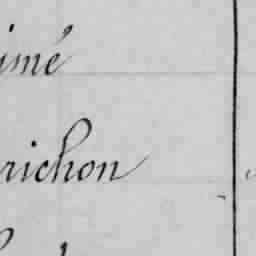 imé
richon